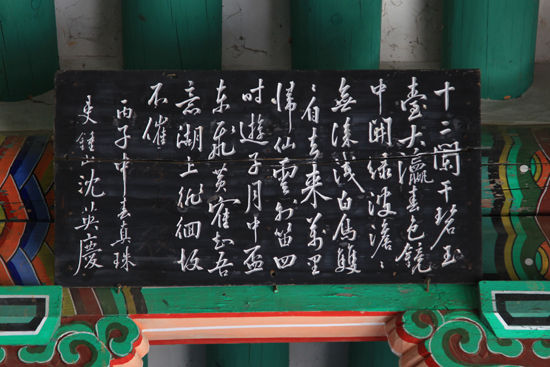 十二闌干碧玉
臺大瀛春色鏡
中開綠波澹〻
無深淺白鳥雙
〻自去来萬里
歸仙雲外笛四
時遊子月中盃
東飛黃鶴知吾
意湖上徘徊故
不催
丙子中春真珠
吏鍾山沈英慶